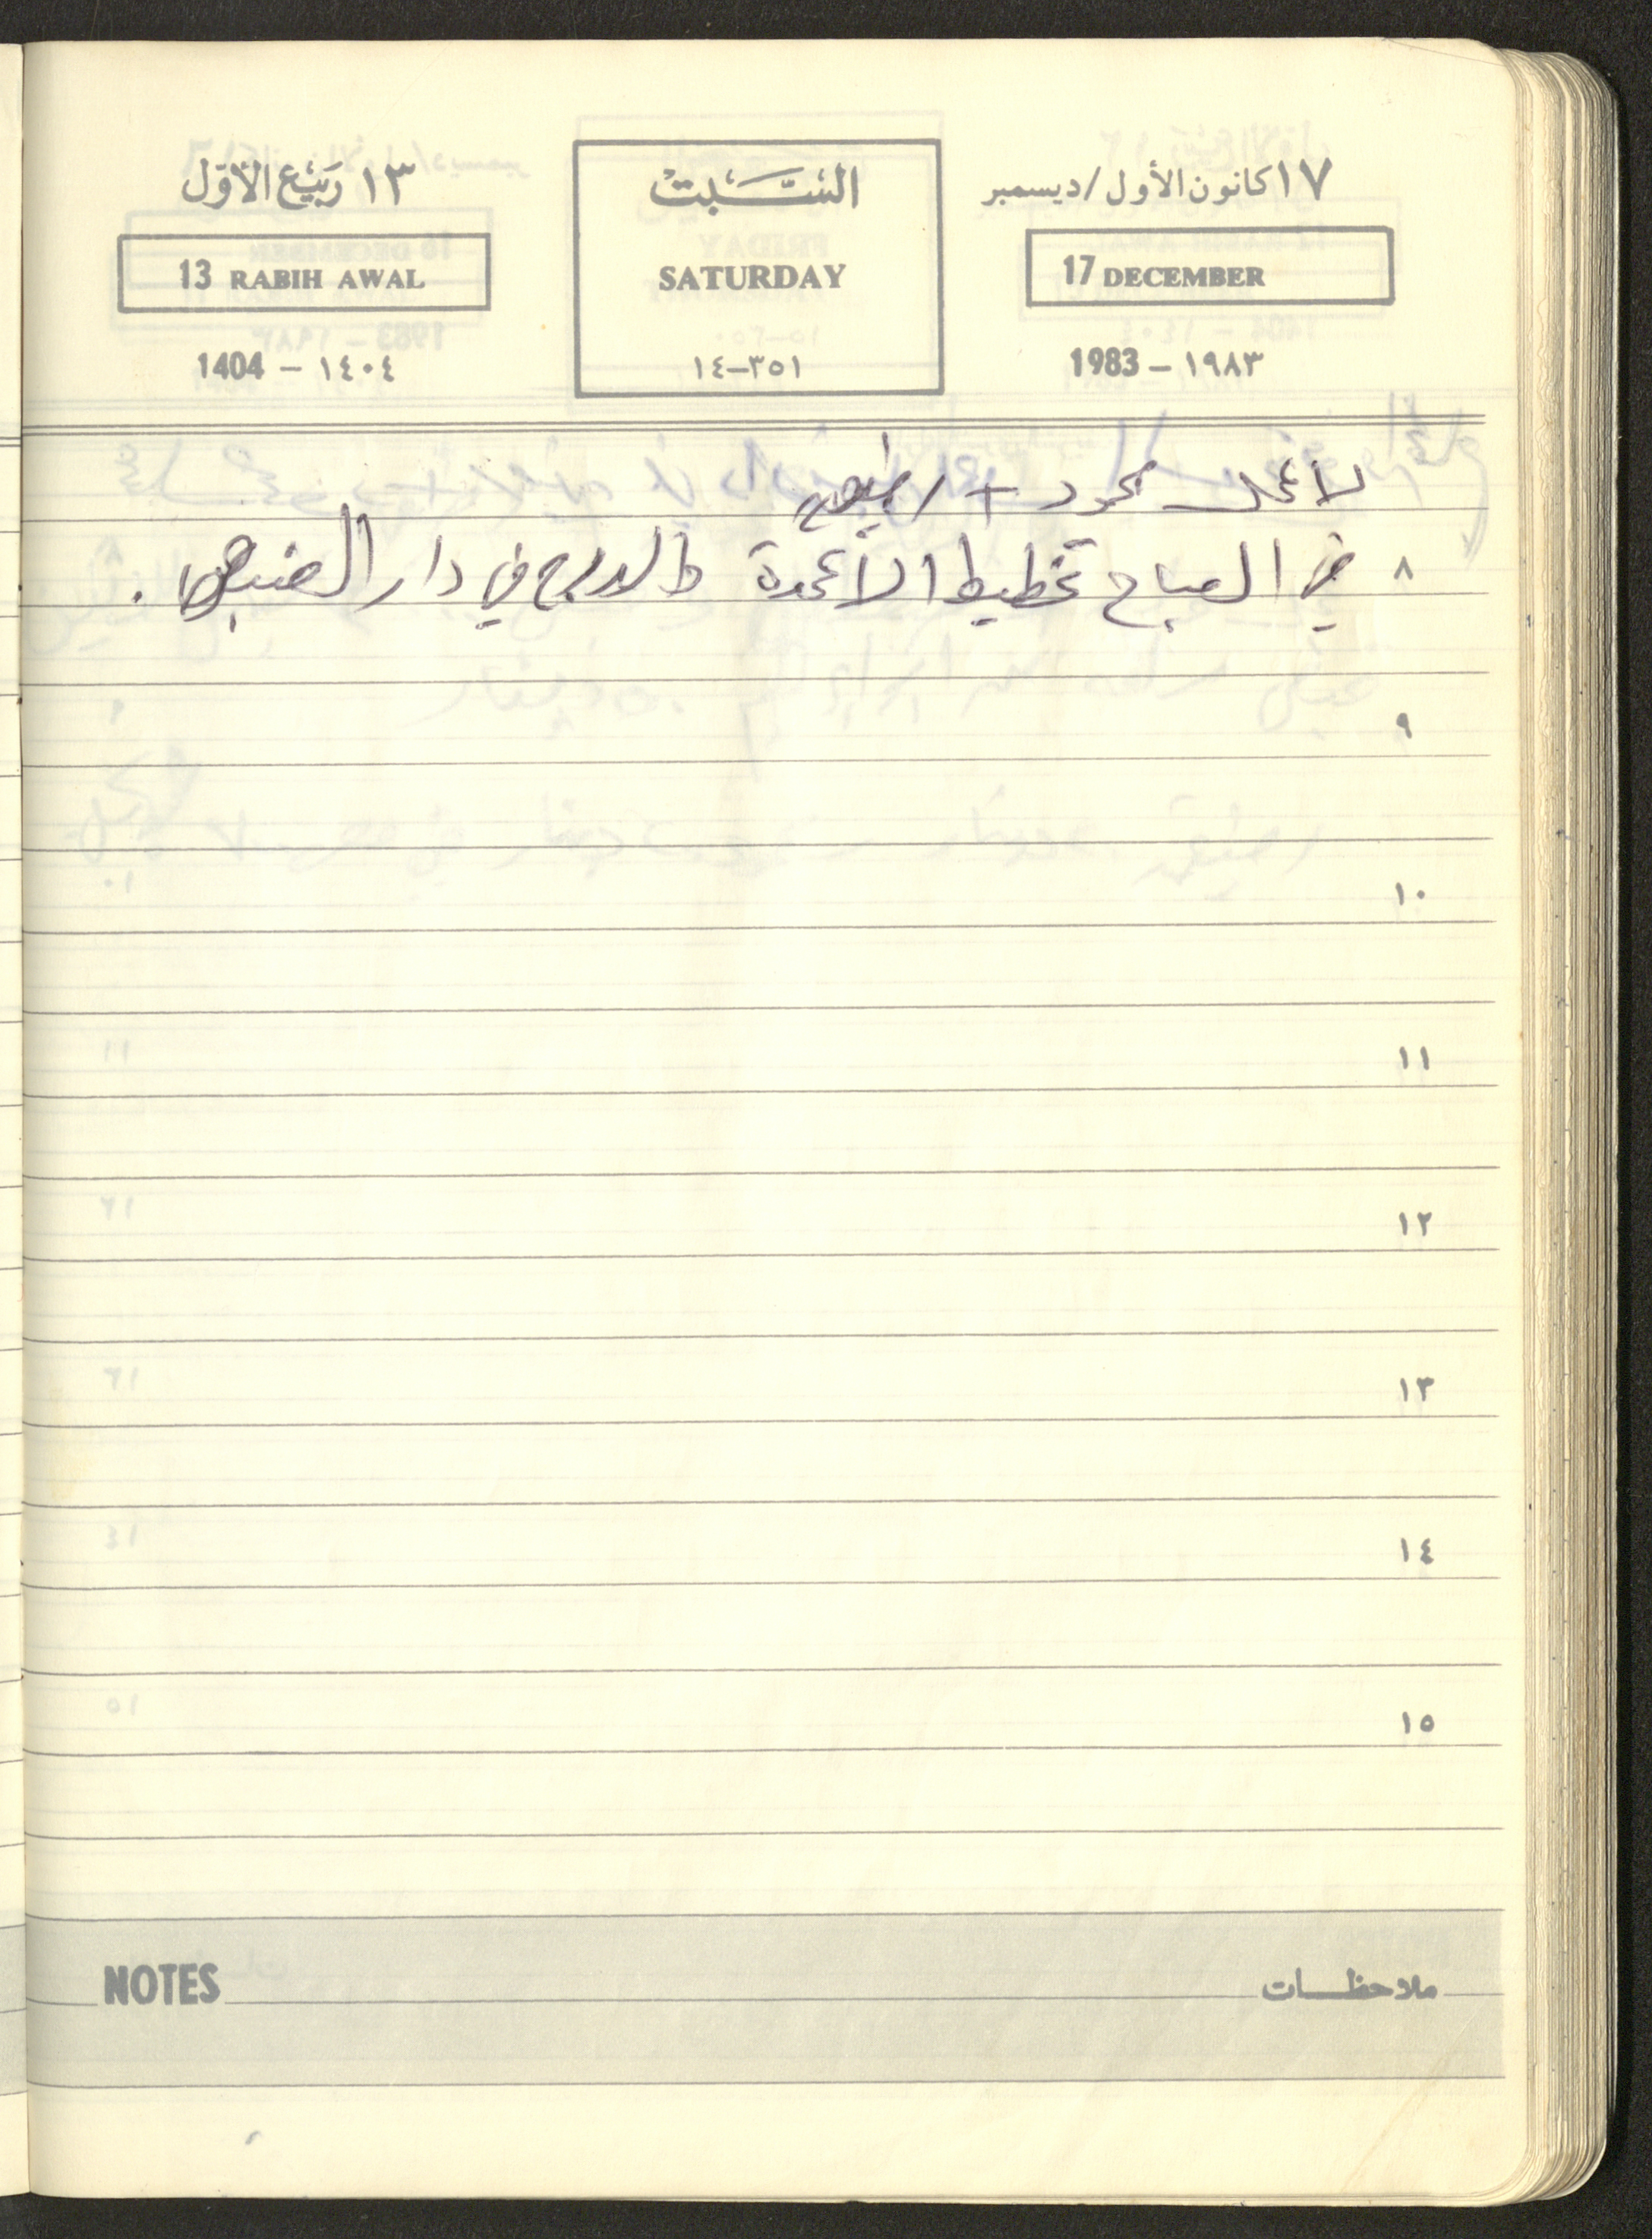 ١٧ كانون الأول/ديسمبر
السبت
١٣ ربيع الأول
17 DECEMBER
SATURDAY
13 RABIH AWAL
1983 – ١٩٨٣
١٤–٣٥١
1404 – ١٤٠٤
لا عمل محمود +
٨ في الصباح تخطيط الأعمدة والدرج في دار
٩
١٠
١١
١٢
١٣
١٤
١٥
ملاحظات
NOTES